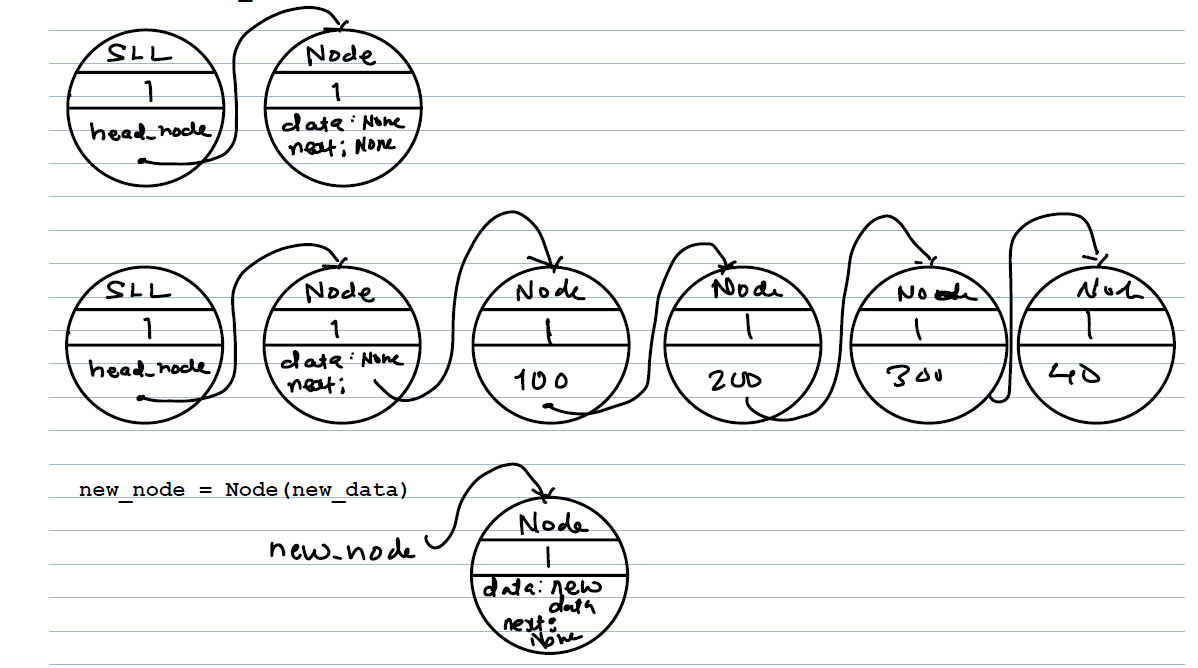 SLL
1
head_node
Node
1
data: None
next: None
SLL
1
head_node
Node
1
data: None
next:
Node
1
100
Node
1
200
Node
1
300
Node
1
40
new_node = Node(new_data)
new_node
Node
1
data: new
data
next:
None